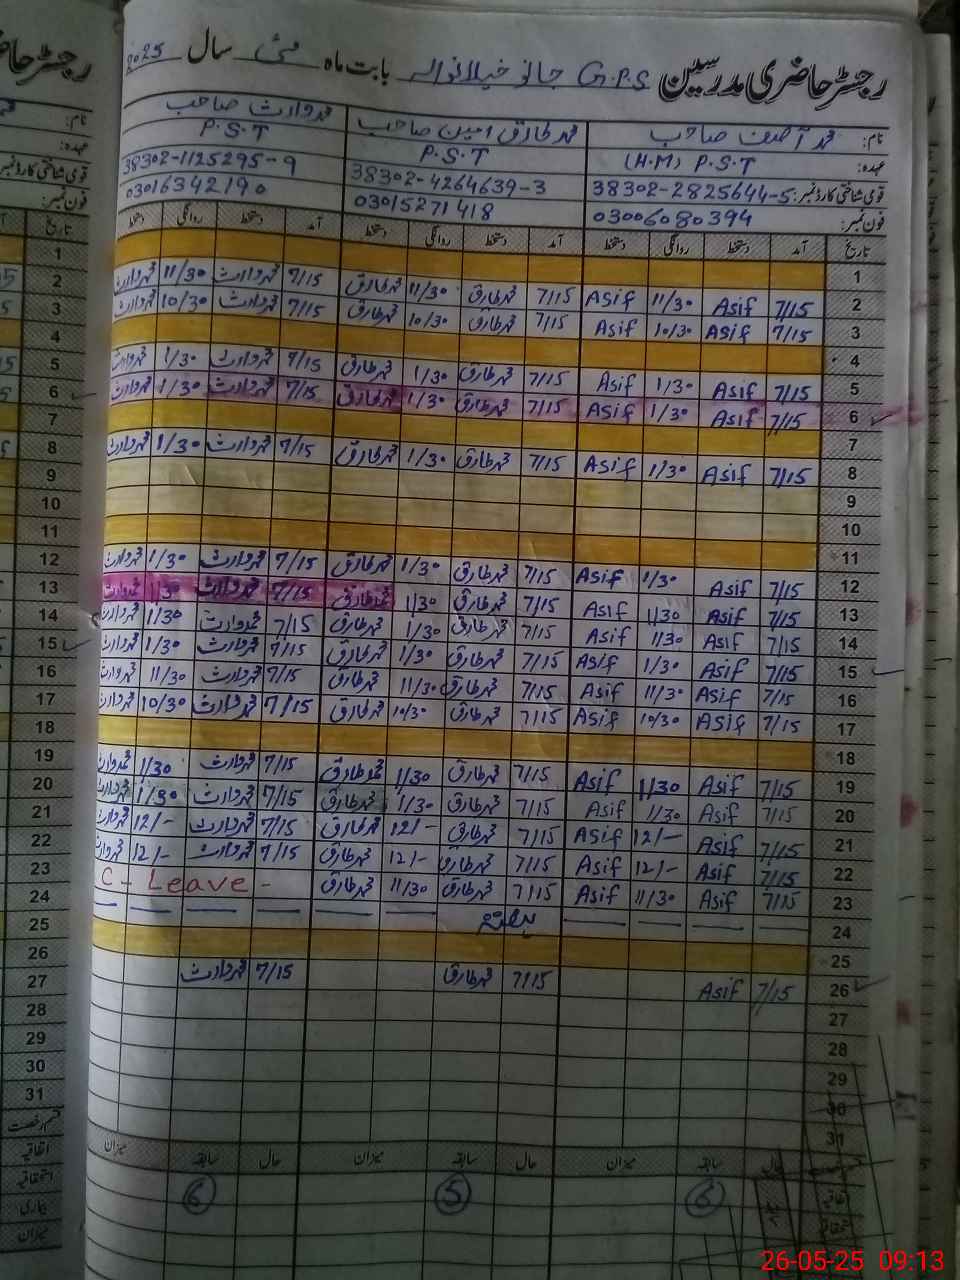 رجسٹر حاضری مدرسین G.P.S جانو خیلانوالہ بابت ماہ مئی سال 2025
نام: محمد آصف صاحب محمد طارق امین صاحب محمد وارث صاحب
عہدہ: (H.M) P.S.T P.S.T P.S.T
قومی شناختی کارڈ نمبر: 38302-2825644-5 38302-4264639-3 38302-1125295-9
فون نمبر: 03006080394 03015271418 03016342190
تاریخ آمد دستخط روانگی دستخط آمد دستخط روانگی دستخط آمد دستخط روانگی دستخط
1
2 7/15 Asif 11/30 Asif 7/15 محمد طارق 11/30 محمد طارق 7/15 محمد وارث 11/30 محمد وارث
3 7/15 Asif 10/30 Asif 7/15 محمد طارق 10/30 محمد طارق 7/15 محمد وارث 10/30 محمد وارث
4
5 7/15 Asif 1/30 Asif 7/15 محمد طارق 1/30 محمد طارق 7/15 محمد وارث 1/30 محمد وارث
6 7/15 Asif 1/30 Asif 7/15 محمد طارق 1/30 محمد طارق 7/15 محمد وارث 1/30 محمد وارث
7
8 7/15 Asif 1/30 Asif 7/15 محمد طارق 1/30 محمد طارق 7/15 محمد وارث 1/30 محمد وارث
9
10
11
12 7/15 Asif 1/30 Asif 7/15 محمد طارق 1/30 محمد طارق 7/15 محمد وارث 1/30 محمد وارث
13 7/15 Asif 1/30 Asif 7/15 محمد طارق 1/30 محمد طارق 7/15 محمد وارث 1/30 محمد وارث
14 7/15 Asif 1/30 Asif 7/15 محمد طارق 1/30 محمد طارق 7/15 محمد وارث 1/30 محمد وارث
15 7/15 Asif 1/30 Asif 7/15 محمد طارق 1/30 محمد طارق 7/15 محمد وارث 1/30 محمد وارث
16 7/15 Asif 11/30 Asif 7/15 محمد طارق 11/30 محمد طارق 7/15 محمد وارث 11/30 محمد وارث
17 7/15 Asif 10/30 Asif 7/15 محمد طارق 10/30 محمد طارق 7/15 محمد وارث 10/30 محمد وارث
18
19 7/15 Asif 1/30 Asif 7/15 محمد طارق 1/30 محمد طارق 7/15 محمد وارث 1/30 محمد وارث
20 7/15 Asif 1/30 Asif 7/15 محمد طارق 1/30 محمد طارق 7/15 محمد وارث 1/30 محمد وارث
21 7/15 Asif 12/- Asif 7/15 محمد طارق 12/- محمد طارق 7/15 محمد وارث 12/- محمد وارث
22 7/15 Asif 12/- Asif 7/15 محمد طارق 12/- محمد طارق 7/15 محمد وارث 12/- محمد وارث
23 7/15 Asif 11/30 Asif 7/15 محمد طارق 11/30 محمد طارق C - Leave -
24 ہفتہ
25
26 7/15 Asif 7/15 محمد طارق 7/15 محمد وارث
27
28
29
30
31
حال سابقہ میزان حال سابقہ میزان حال سابقہ میزان
اتفاقیہ 6 5 6
26-05-25 09:13